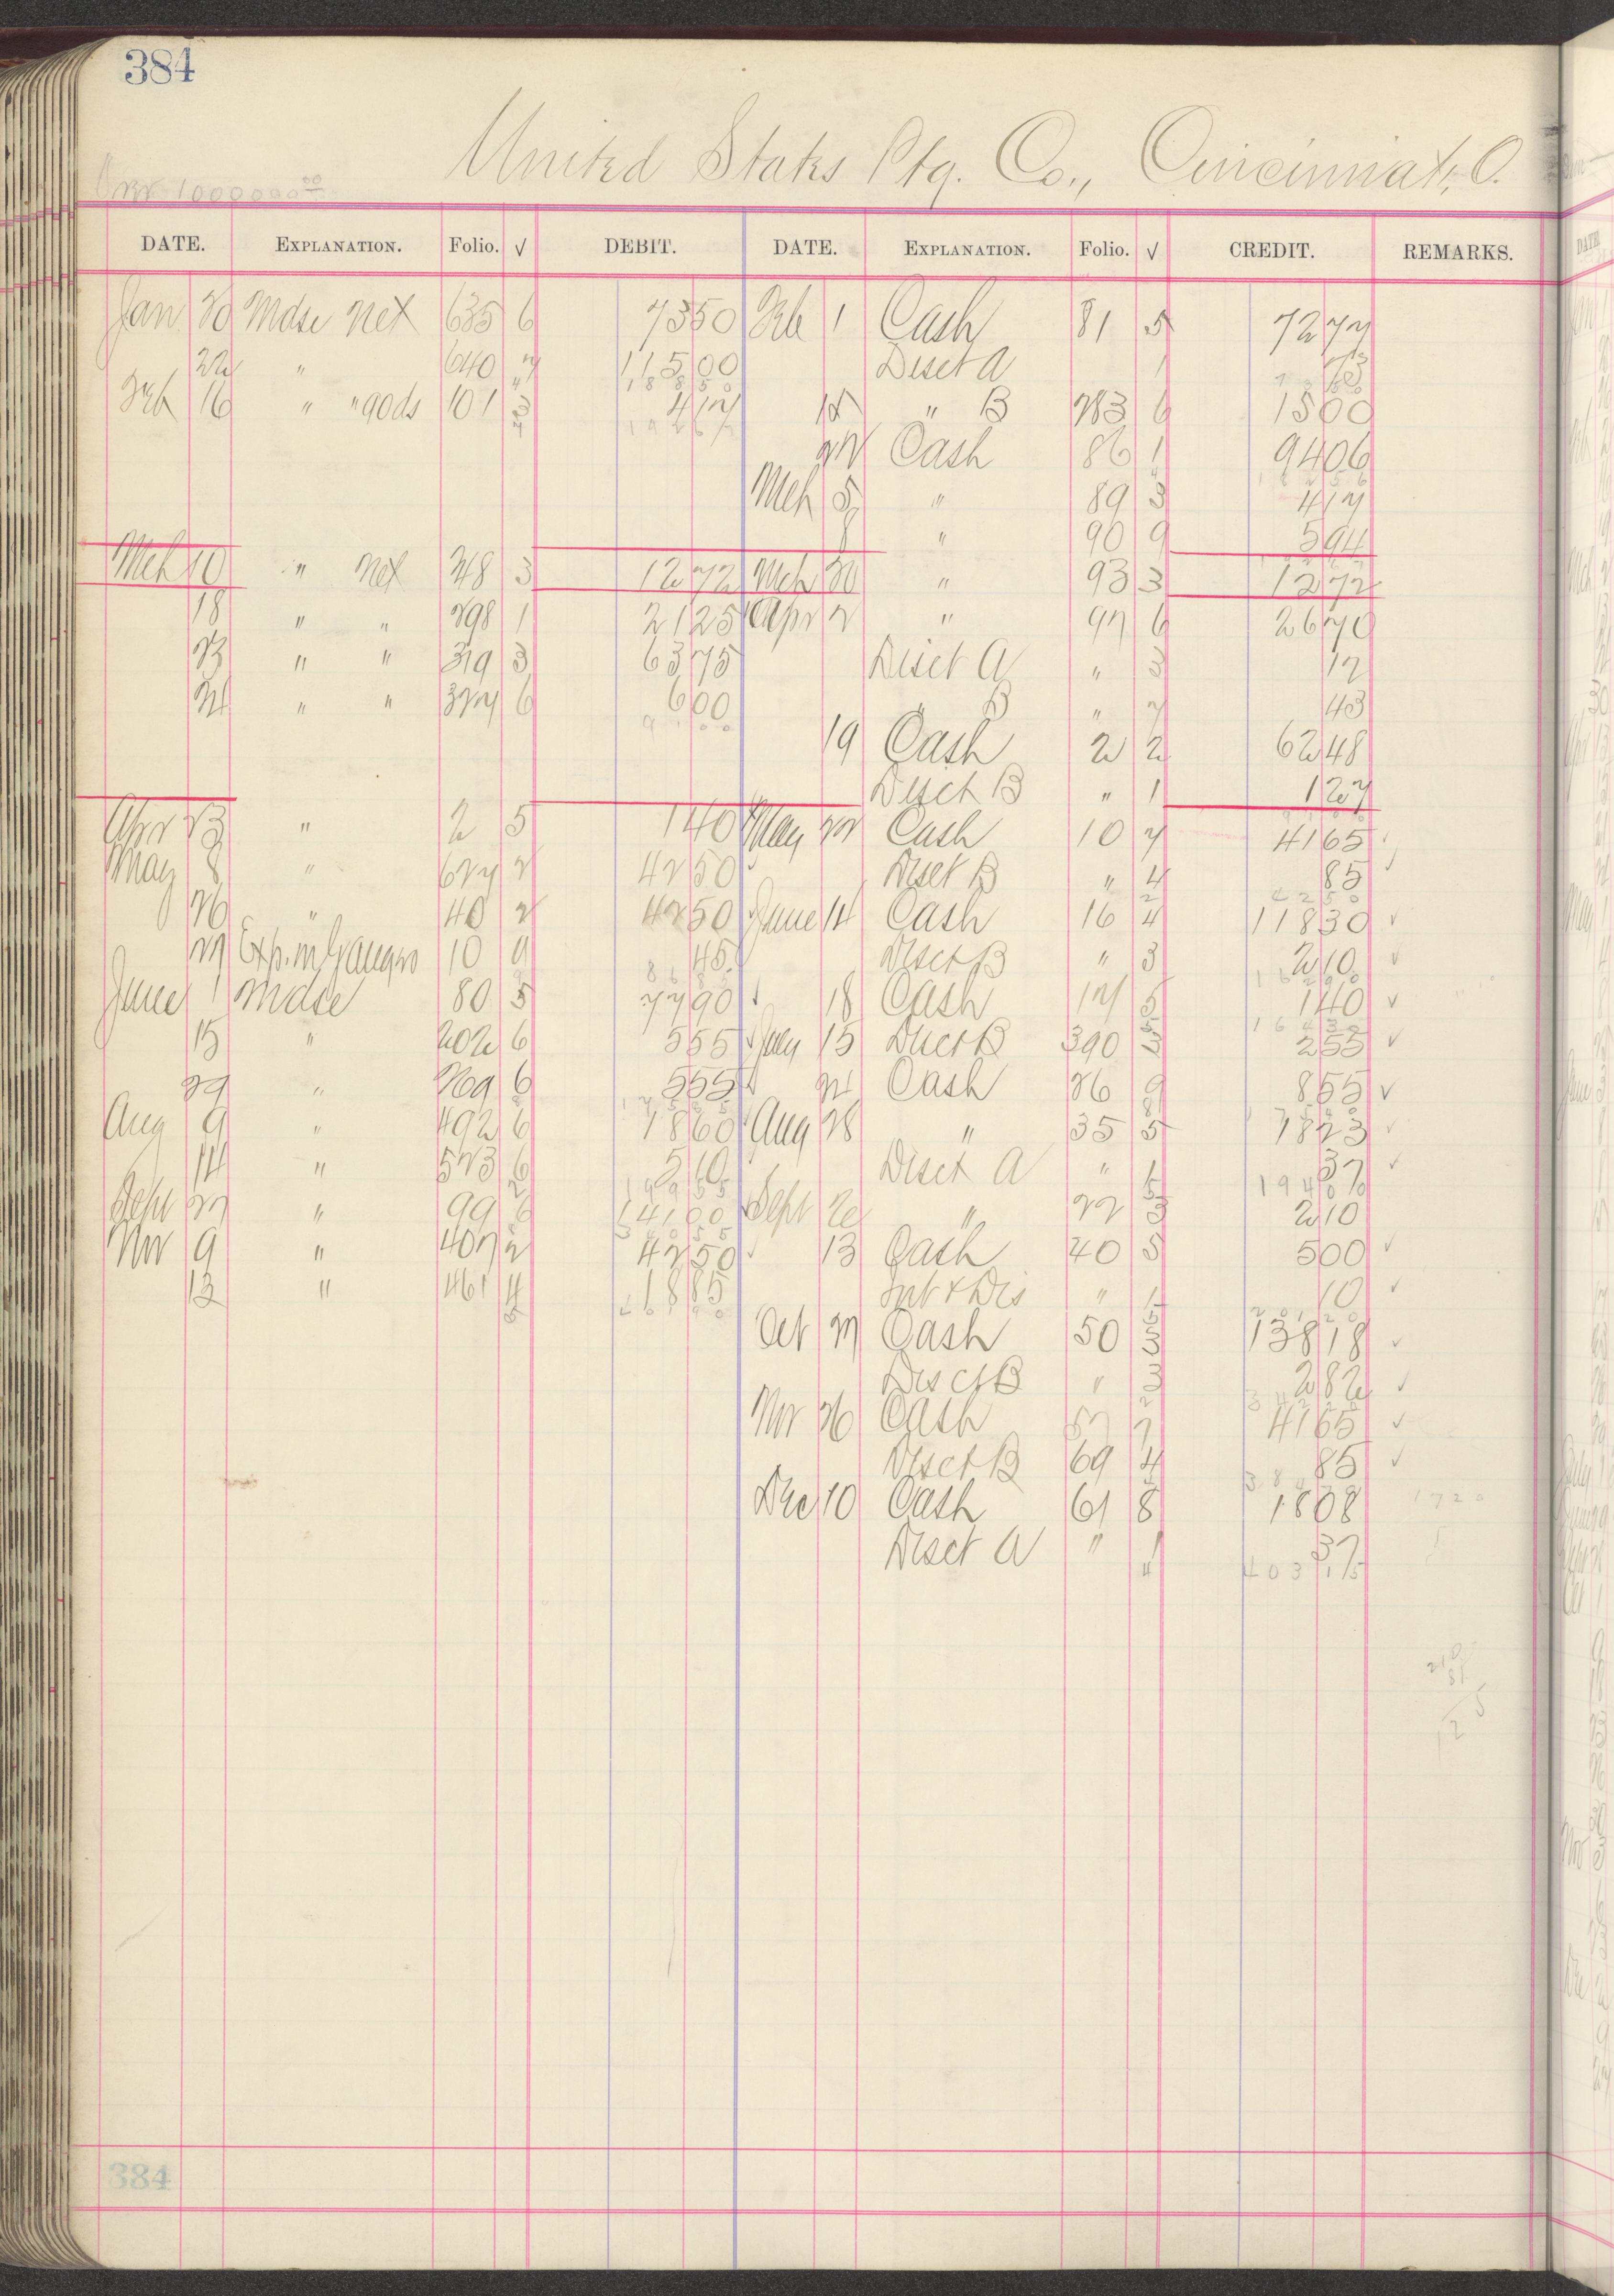 384
United States Ptg. Co., Cincinnati, O.
DATE. EXPLANATION. Folio. √ DEBIT. DATE. EXPLANATION. Folio. √ CREDIT. REMARKS.
Jan 20 Mdse net 635 6 73 50 Feb 1 Cash 81 5 72 77
22 " 640 7 115 00 Disct A 1 73
Feb 16 " " 90ds 101 3 4 17 " B 283 6 15 00
Cash 86 1 94 06
Mch 5 " 89 3 4 17
" 90 9 5 94
Mch 10 " net 248 3 12 72 Mch 30 " 93 3 12 72
18 " " 298 1 21 25 Apr 2 " 97 6 26 70
23 " " 319 3 63 75 Disct A " 3 12
24 " " 327 6 6 00 B " 7 43
19 Cash 2 2 62 48
Disct B " 1 1 27
Apr 23 " 2 5 1 40 May 22 Cash 10 7 41 65
May 8 " 627 2 42 50 Disct B " 4 85
26 " 40 2 42 50 June 14 Cash 16 4 118 30
27 10 9 45 Disct B " 3 2 10
June 1 Mdse 80 5 77 90 18 Cash 17 5 1 40
15 " 202 6 5 55 July 15 Disct B 390 3 2 55
29 " 269 6 5 55 24 Cash 26 9 8 55
Aug 9 " 492 6 18 60 Aug 28 " 35 5 18 23
14 " 573 6 5 10 Disct A " 1 37
Sept 27 " 99 6 141 00 Sept " 22 3 2 10
Nov 9 " 407 2 42 50 13 Cash 40 5 5 00
13 " 461 4 18 85 Int & Dis " 1 10
Oct 27 Cash 50 3 138 18
Disct B " 3 2 82
Nov 26 Cash 57 7 41 65
Disct B 69 4 85
Dec 10 Cash 61 8 18 08
Disct A " 1 37
403 75
384